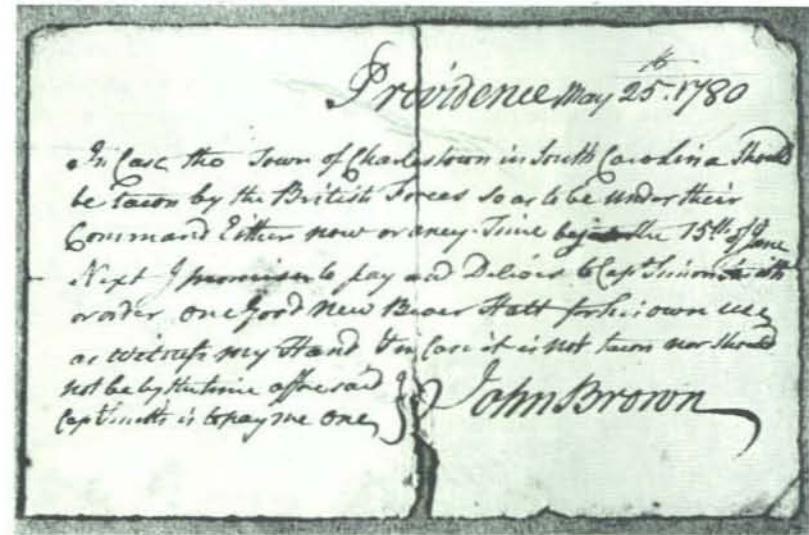 Providence May 25th. 1780
In Case the Town of Charlestown in South Carolina Should
be Tacon by the British Forces so as to be under their
Command Either now or aney Time before the 15th of June
Next I promise to pay and Deliver to Capt Simon Smith
or order one Good New Beaver Hatt for his own use
as witness my Hand & in Case it is not tacon nor Should
not be by the time afforesaid
Capt Smith is to pay me one
John Brown